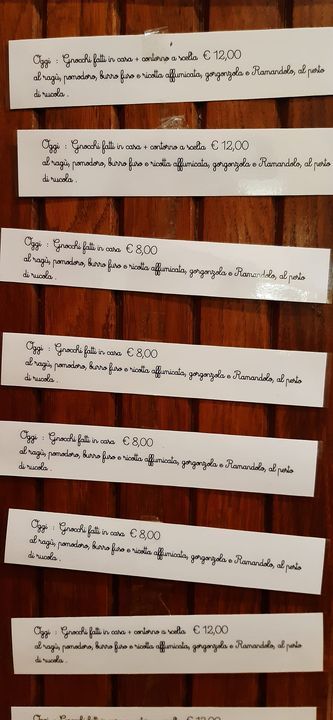 Oggi : Gnocchi fatti in casa + contorno a scelta € 12,00
al ragù, pomodoro, burro fuso e ricotta affumicata, gorgonzola e Ramandolo, al pesto
di rucola .
Oggi : Gnocchi fatti in casa + contorno a scelta € 12,00
al ragù, pomodoro, burro fuso e ricotta affumicata, gorgonzola e Ramandolo, al pesto
di rucola .
Oggi : Gnocchi fatti in casa € 8,00
al ragù, pomodoro, burro fuso e ricotta affumicata, gorgonzola e Ramandolo, al pesto
di rucola .
Oggi : Gnocchi fatti in casa € 8,00
al ragù, pomodoro, burro fuso e ricotta affumicata, gorgonzola e Ramandolo, al pesto
di rucola .
Oggi : Gnocchi fatti in casa € 8,00
al ragù, pomodoro, burro fuso e ricotta affumicata, gorgonzola e Ramandolo, al pesto
di rucola .
Oggi : Gnocchi fatti in casa € 8,00
al ragù, pomodoro, burro fuso e ricotta affumicata, gorgonzola e Ramandolo, al pesto
di rucola .
Oggi : Gnocchi fatti in casa + contorno a scelta € 12,00
al ragù, pomodoro, burro fuso e ricotta affumicata, gorgonzola e Ramandolo, al pesto
di rucola .